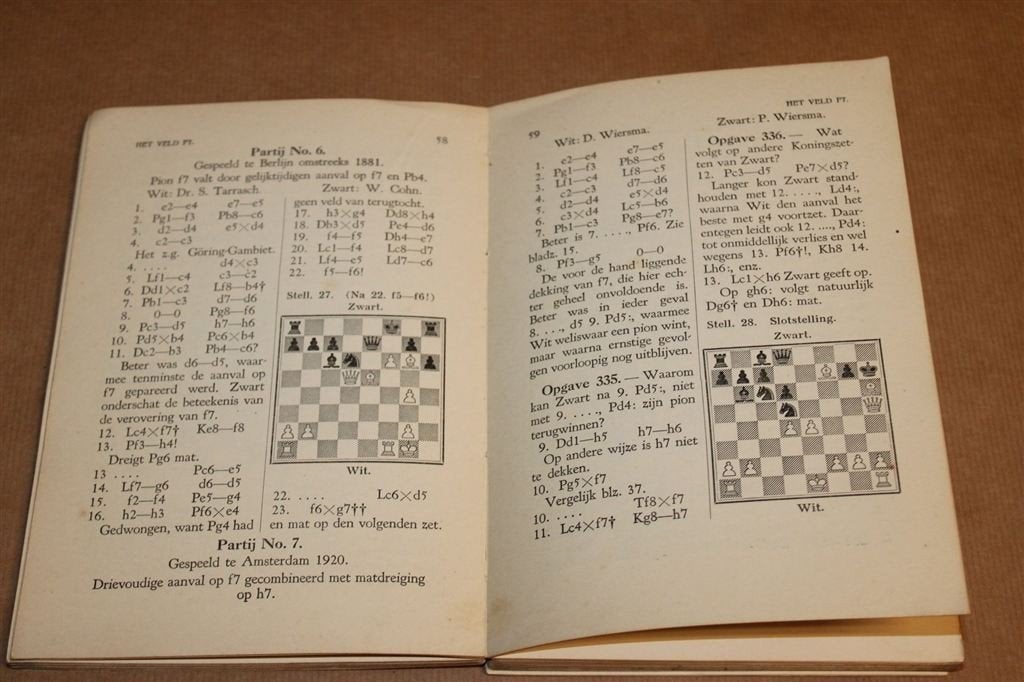 HET VELD F7. 58
Partij No. 6.
Gespeeld te Berlijn omstreeks 1881.
Pion f7 valt door gelijktijdigen aanval op f7 en Pb4.
Wit: Dr. S. Tarrasch. Zwart: W. Cohn.
1. e2—e4 e7—e5
2. Pg1—f3 Pb8—c6
3. d2—d4 e5×d4
4. c2—c3
Het z.g. Göring-Gambiet.
4. .... d4×c3
5. Lf1—c4 c3—c2
6. Dd1×c2 Lf8—b4†
7. Pb1—c3 d7—d6
8. 0—0 Pg8—f6
9. Pc3—d5 h7—h6
10. Pd5×b4 Pc6×b4
11. Dc2—b3 Pb4—c6?
Beter was d6—d5, waar-
mee tenminste de aanval op
f7 gepareerd werd. Zwart
onderschat de beteekenis van
de verovering van f7.
12. Lc4×f7† Ke8—f8
13. Pf3—h4!
Dreigt Pg6 mat.
13 .... Pc6—e5
14. Lf7—g6 d6—d5
15. f2—f4 Pe5—g4
16. h2—h3 Pf6×e4
Gedwongen, want Pg4 had
geen veld van terugtocht.
17. h3×g4 Dd8×h4
18. Db3×d5 Pe4—d6
19. f4—f5 Dh4—e7
20. Lc1—f4 Lc8—d7
21. Lf4—e5 Ld7—c6
22. f5—f6!
Stell. 27. (Na 22. f5—f6!)
Zwart.
Wit.
22. .... Lc6×d5
23. f6×g7††
en mat op den volgenden zet.
Partij No. 7.
Gespeeld te Amsterdam 1920.
Drievoudige aanval op f7 gecombineerd met matdreiging
op h7.
59 HET VELD F7.
Wit: D. Wiersma. Zwart: P. Wiersma.
1. e2—e4 e7—e5
2. Pg1—f3 Pb8—c6
3. Lf1—c4 Lf8—c5
4. c2—c3 d7—d6
5. d2—d4 e5×d4
6. c3×d4 Lc5—b6
7. Pb1—c3 Pg8—e7?
Beter is 7. ...., Pf6. Zie
bladz. 15.
8. Pf3—g5 0—0
De voor de hand liggende
dekking van f7, die hier ech-
ter geheel onvoldoende is.
Beter was in ieder geval
8. ...., d5 9. Pd5:, waarmee
Wit weliswaar een pion wint,
maar waarna ernstige gevol-
gen voorloopig nog uitblijven.
Opgave 335. — Waarom
kan Zwart na 9. Pd5:, niet
met 9. ...., Pd4: zijn pion
terugwinnen?
9. Dd1—h5 h7—h6
Op andere wijze is h7 niet
te dekken.
10. Pg5×f7
Vergelijk blz. 37.
10. .... Tf8×f7
11. Lc4×f7† Kg8—h7
Opgave 336. — Wat
volgt op andere Koningszet-
ten van Zwart?
12. Pc3—d5 Pe7×d5?
Langer kon Zwart stand-
houden met 12. ...., Ld4:,
waarna Wit den aanval het
beste met g4 voortzet. Daar-
entegen leidt ook 12. ...., Pd4:
tot onmiddellijk verlies en wel
wegens 13. Pf6†!, Kh8 14.
Lh6:, enz.
13. Lc1×h6 Zwart geeft op.
Op gh6: volgt natuurlijk
Dg6† en Dh6: mat.
Stell. 28. Slotstelling.
Zwart.
Wit.